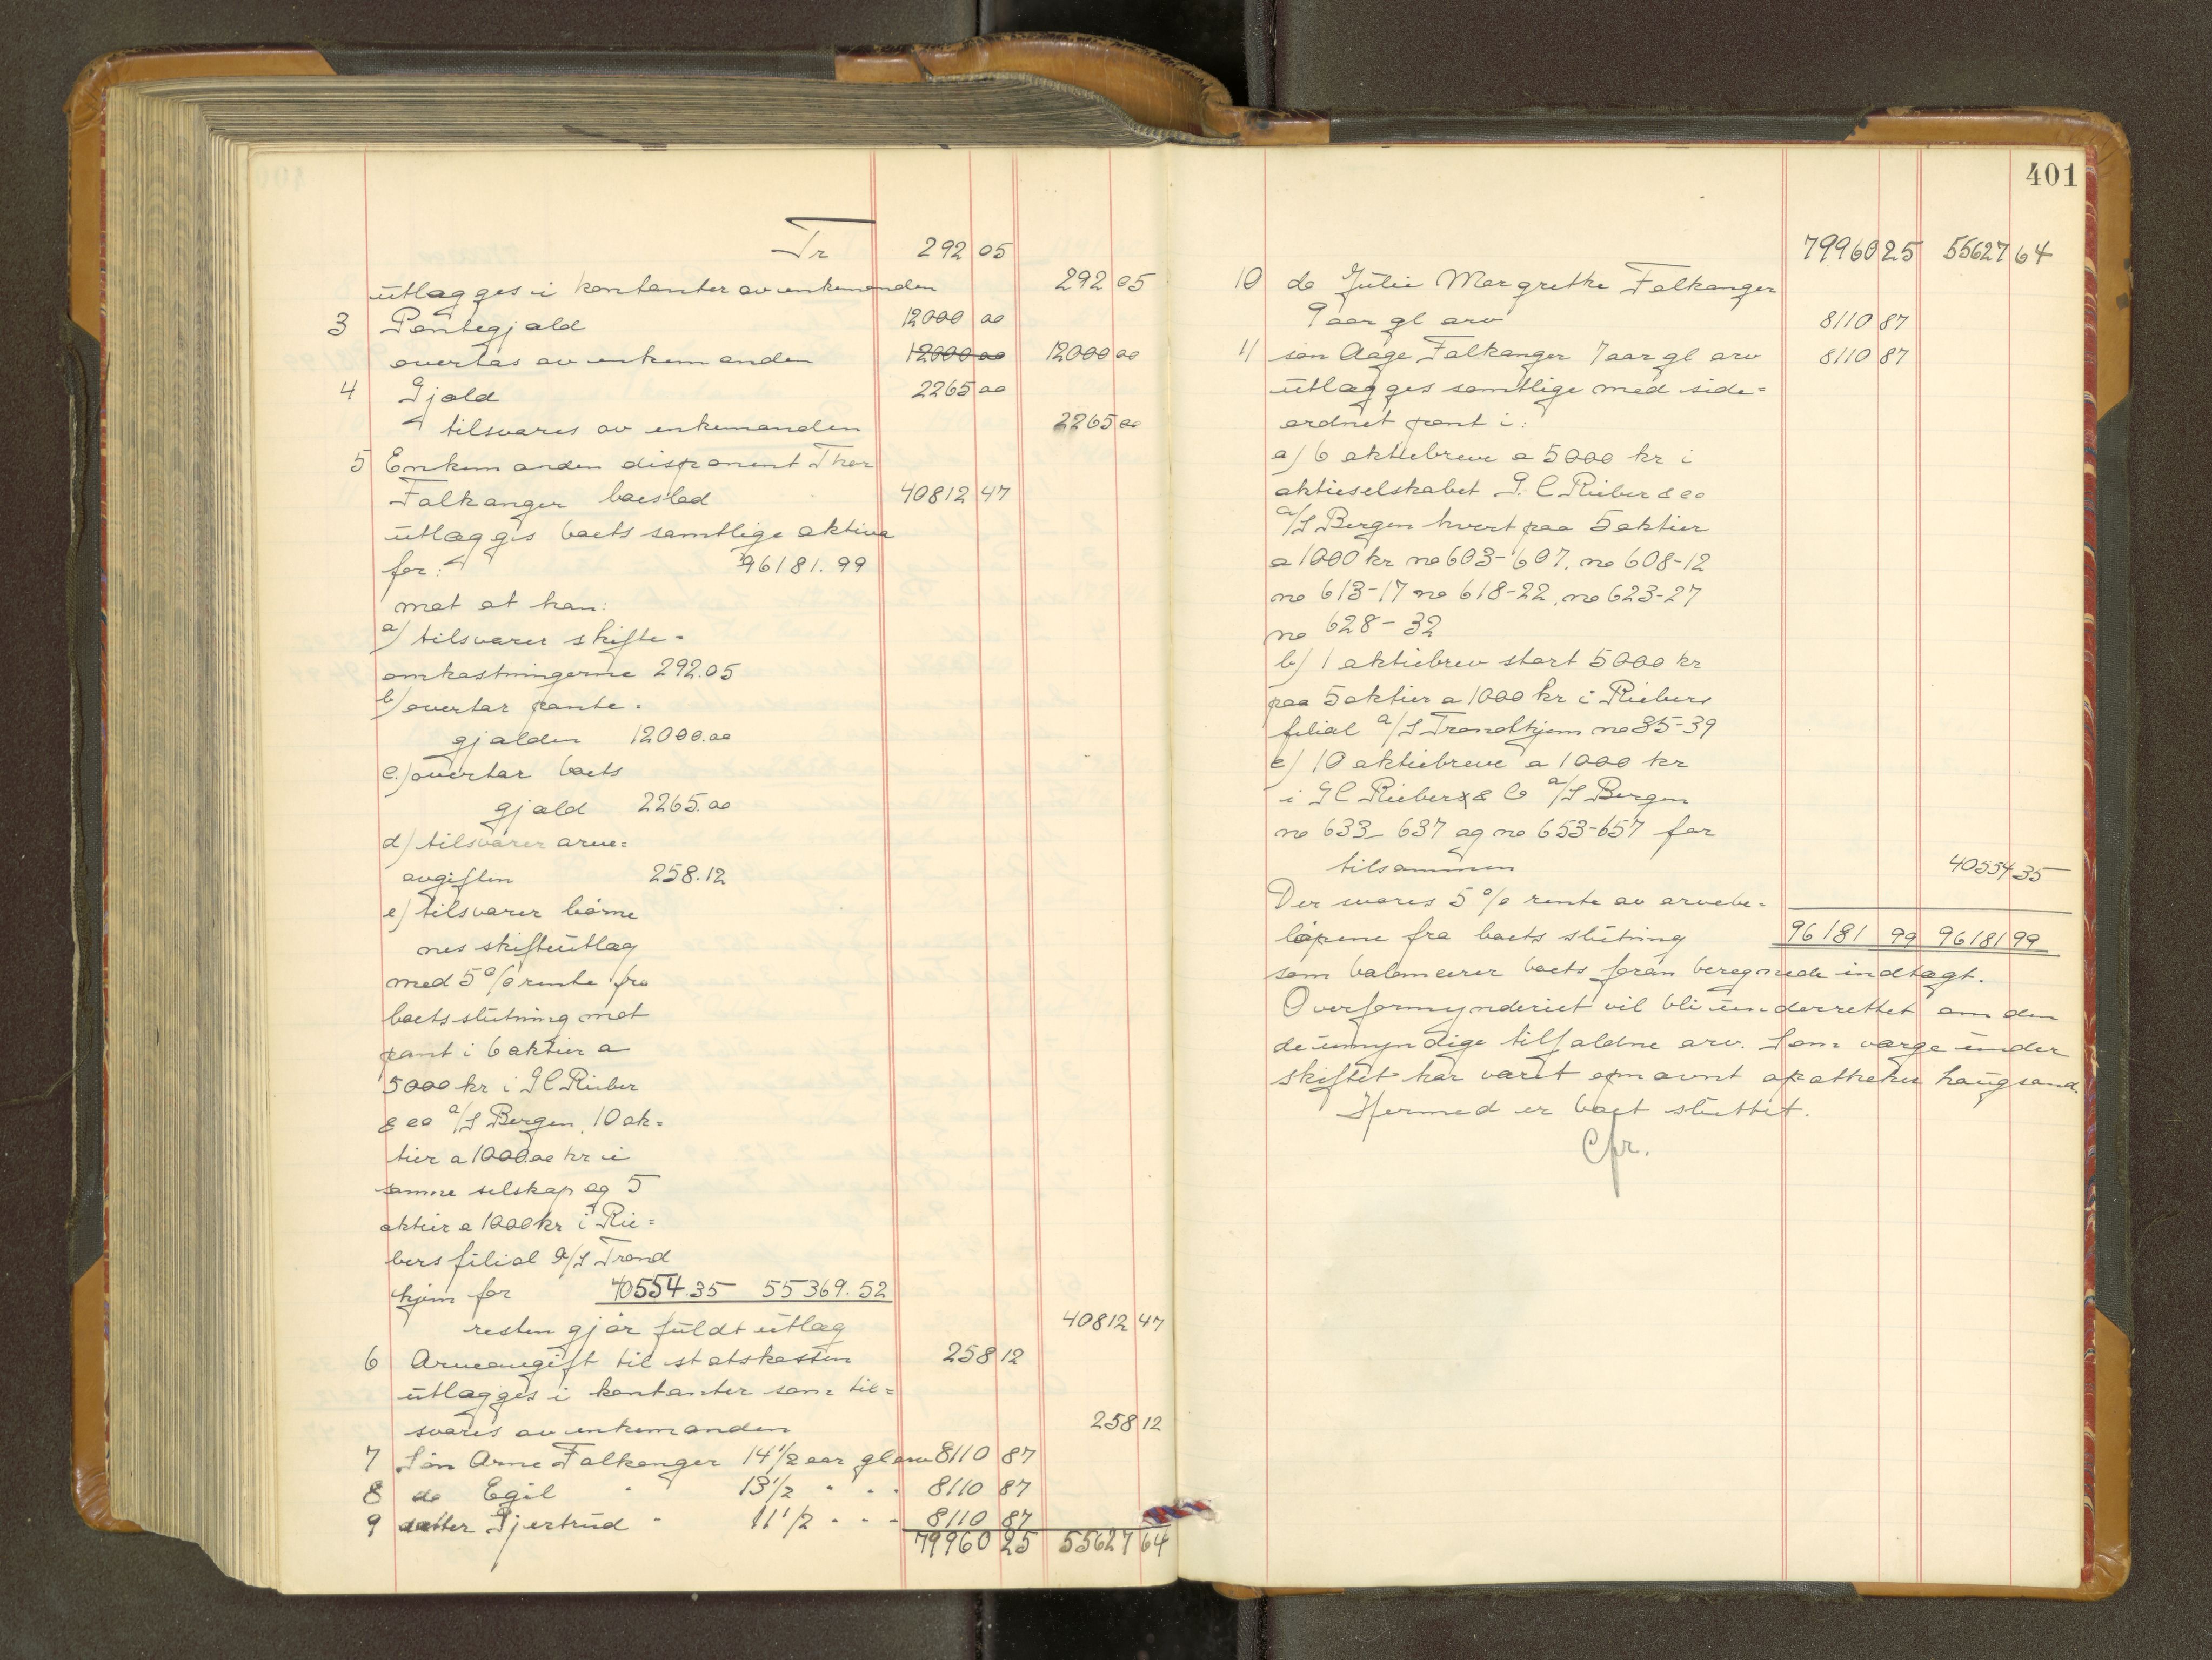 Tr 292 05
utlægges i kontanter av enkemanden 292 05
3 Pantegjæld 12000 00
overtas av enkemanden 12000 00 12000 00
4 Gjæld 2265 00
tilsvares av enkemanden 2265 00
5 Enkemanden disponent Thor
Falkanger boeslod 40812 47
utlægges boets samtlige aktiva
for: 96181.99
mot at han:
a) tilsvarer skifte-
omkostningerne 292.05
b) overtar pante-
gjælden 12000.00
c.) overtar boets
gjæld 2265.00
d) tilsvarer arve=
avgiften 258.12
e) tilsvarer børne
nes skifteutlæg
med 5% rente fra
boets slutning mot
pant i 6 aktier a
5000 kr i G C Rieber
& co a/s Bergen, 10 ak=
tier a 1000.00 kr i
samme selskap og 5
aktier a 1000 kr i Rie=
bers filial a/s Trond
hjem for 40554.35 55369.52
resten gjør fuldt utlæg 40812 47
6 Arveavgift til statskassen 258 12
utlægges i kontanter som til=
svares av enkemanden 258 12
7 Søn Arne Falkanger 14 1/2 aar gl arv 8110 87
8 do Egil " 13 1/2 " " " 8110 87
9 datter Gjertrud " 11 1/2 " " " 8110 87
79960 25 55627 64
401
79960 25 55627 64
10 do Julie Margrethe Falkanger
9 aar gl arv 8110 87
11 søn Aage Falkanger 7 aar gl arv 8110 87
utlægges samtlige med side=
ordnet pant i:
a) 6 aktiebreve a 5000 kr i
aktieselskabet G. C Rieber & co
a/s Bergen hvert paa 5 aktier
a 1000 kr no 603-607, no 608-12
no 613-17 no 618-22, no 623-27
no 628-32
b) 1 aktiebrev stort 5000 kr
paa 5 aktier a 1000 kr i Riebers
filial a/s Trondhjem no 35-39
c) 10 aktiebreve a 1000 kr
i G C Rieber & Co a/s Bergen
no 633-637 og no 653-657 for
tilsammen 40554 35
Der svares 5% rente av arvebe=
løpene fra boets slutning 96181 99 96181 99
som balancerer boets foran beregnede indtægt.
Overformynderiet vil bli underrettet om den
de umyndige tilfaldne arv. Som værge under
skiftet har været opnævnt apotheker Haugsand.
Hermed er boet sluttet.
Cfr.